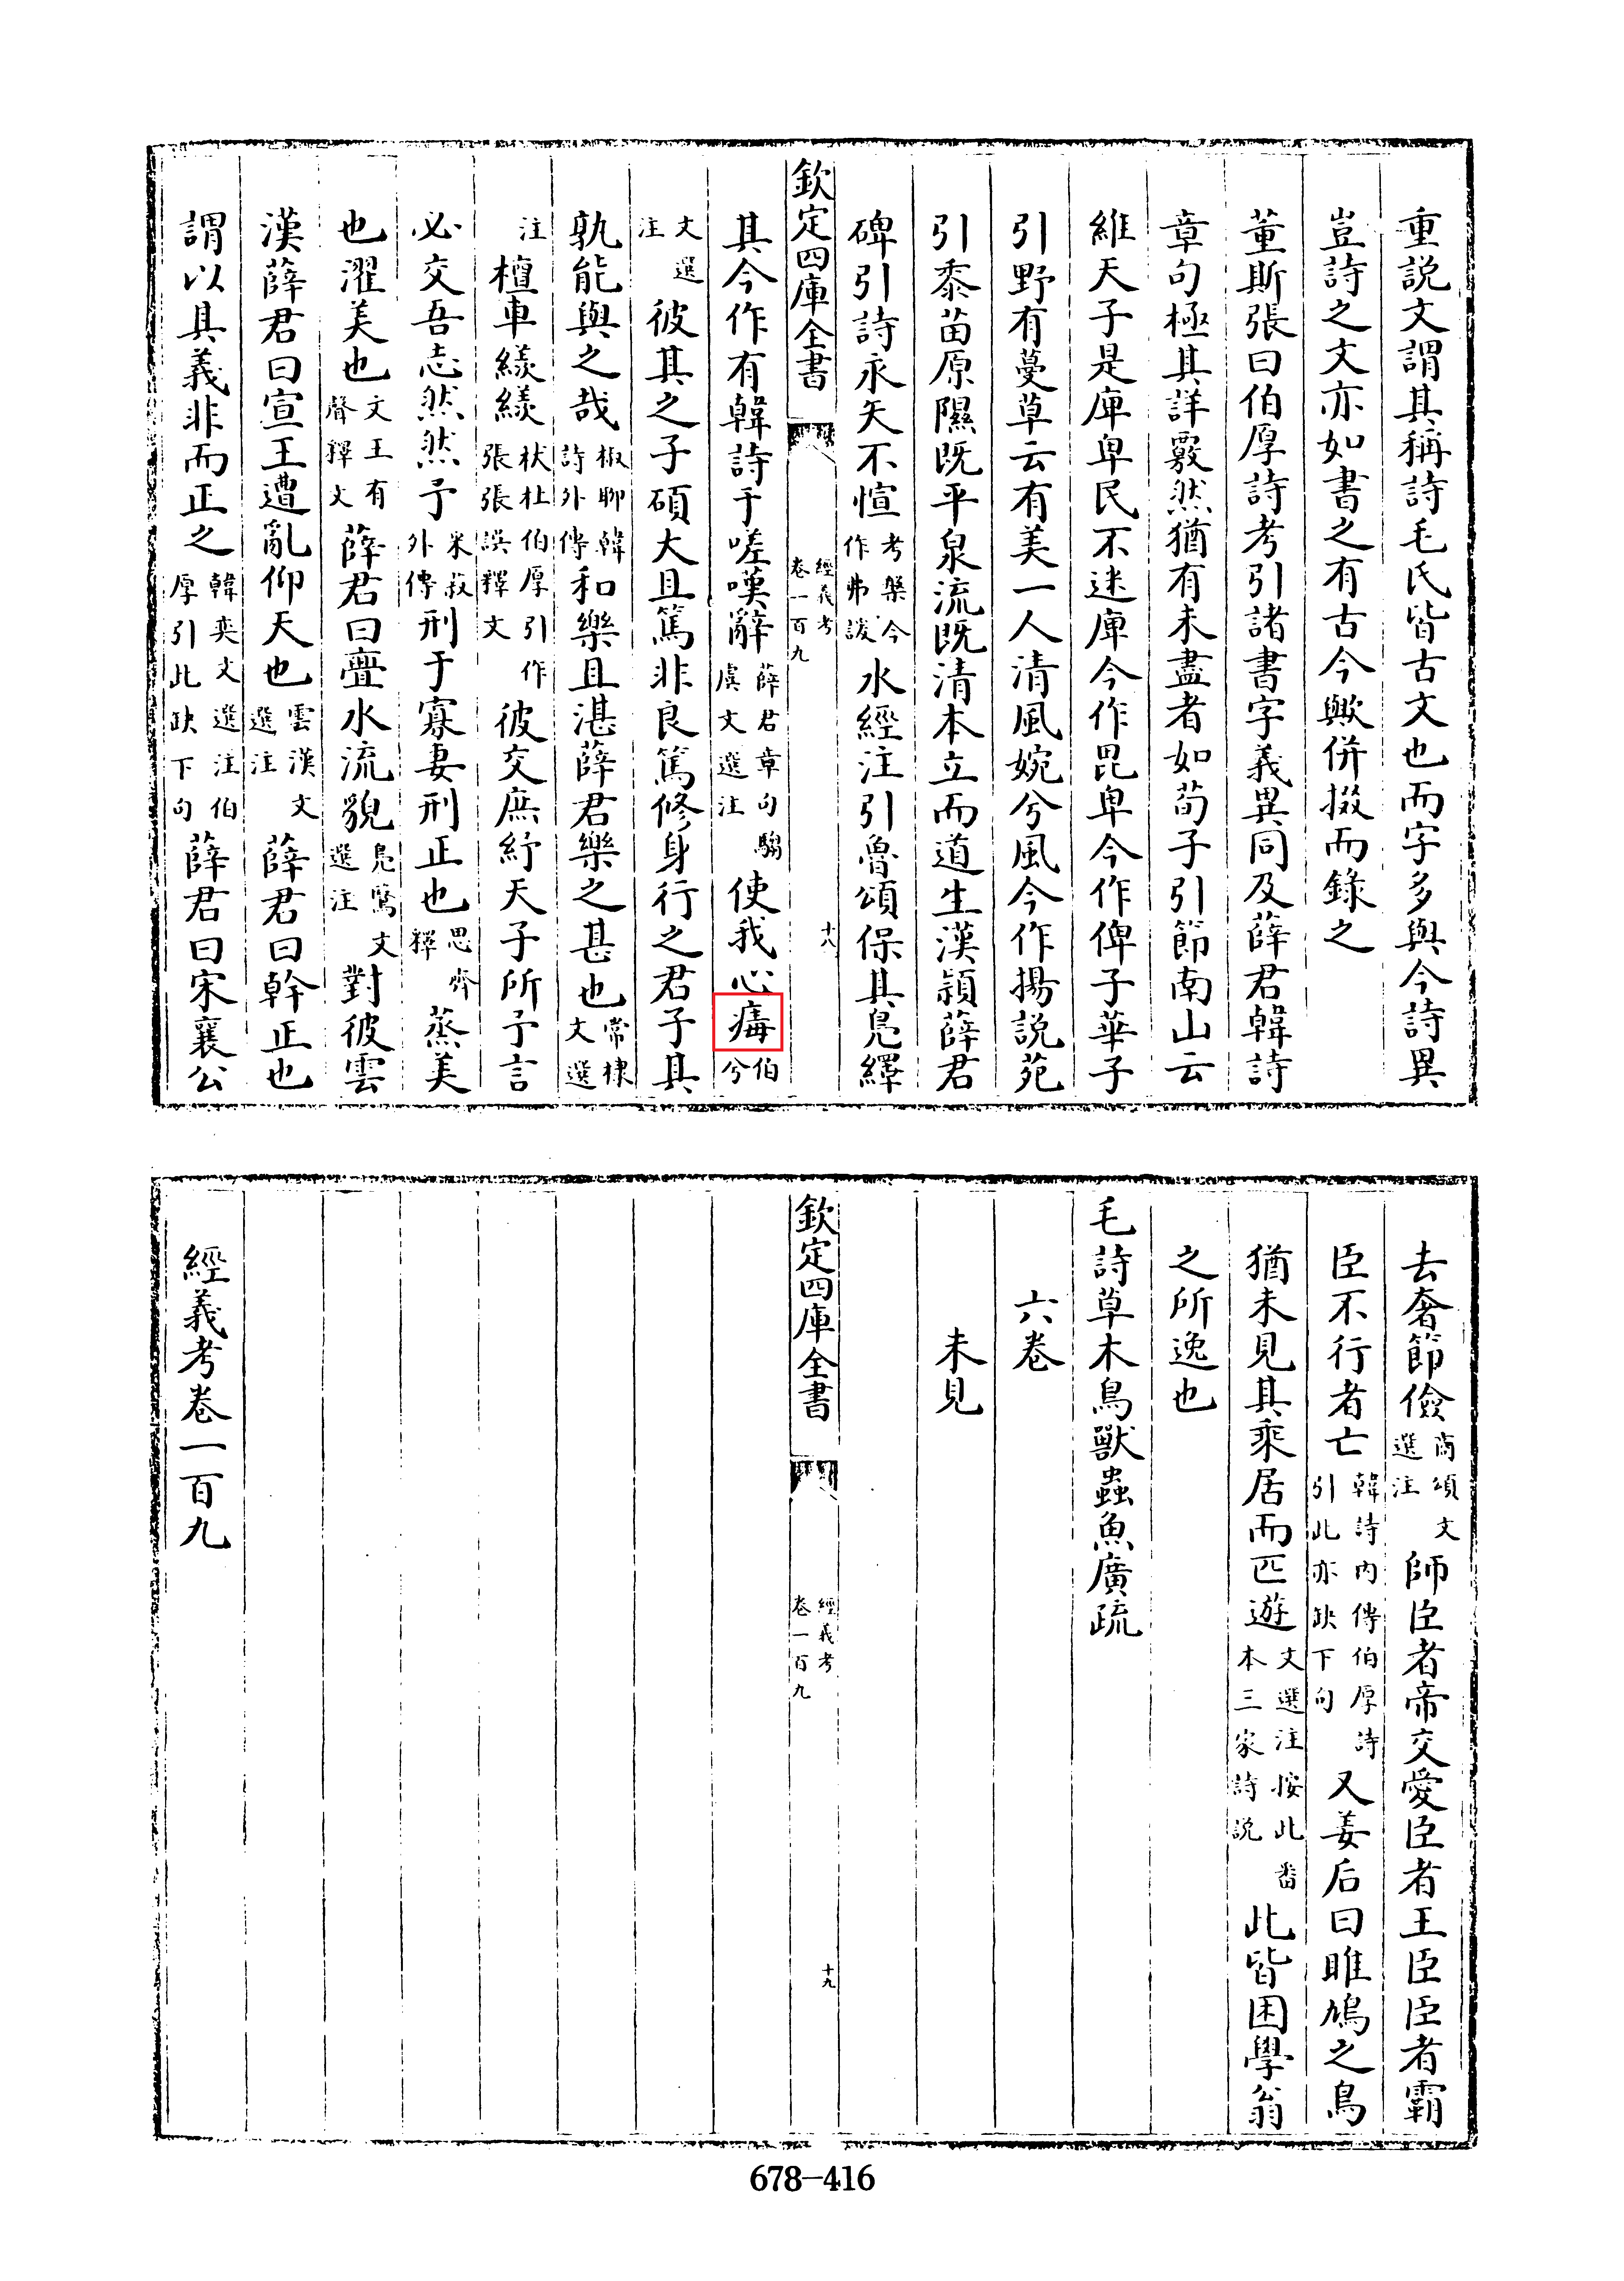 重説文謂其稱詩毛氏皆古文也而字多與今詩異
豈詩之文亦如書之有古今歟併掇而錄之
董斯張曰伯厚詩考引諸書字義異同及薛君韓詩
章句極其詳覈然猶有未盡者如荀子引節南山云
維天子是庳卑民不迷庳今作毘卑今作俾子華子
引野有蔓草云有美一人清風婉兮風今作揚説苑
引黍苗原隰既平泉流既清本立而道生漢潁薛君
碑引詩永矢不愃考槃今作弗諼水經注引魯頌保其鳧繹
欽定四庫全書
經義考
卷一百九
十八
其今作有韓詩于嗟嘆辭薛君章句騶虞文選注使我心痗伯兮
文選注彼其之子碩大且篤非良篤修身行之君子其
孰能與之哉椒聊韓詩外傳和樂且湛薛君樂之甚也常棣文選
注檀車緂緂杕杜伯厚引作張張誤釋文彼交庶紓天子所予言
必交吾志然然予采菽外傳刑于寡妻刑正也思齊釋蒸美
也濯美也文王有聲釋文薛君曰亹水流貌鳧鷖文選注對彼雲
漢薛君曰宣王遭亂仰天也雲漢文選注薛君曰幹正也
謂以其義非而正之韓奕文選注伯厚引此缺下句薛君曰宋襄公
去奢節儉商頌文選注師臣者帝交愛臣者王臣臣者霸
臣不行者亡韓詩内傳伯厚詩引此亦缺下句又姜后曰雎鳩之鳥
猶未見其乘居而匹遊文選注按此畨本三家詩説此皆困學翁
之所逸也
毛詩草木鳥獸蟲魚廣疏
六卷
未見
欽定四庫全書
經義考
卷一百九
十九
經義考卷一百九
678-416